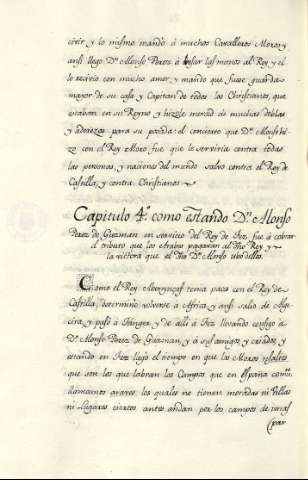 civir, y lo mismo mandò à muchos Cavalleros Moros, y
ansi llego Dⁿ. Alonso Perez à besar las manos al Rey y el
lo recivio con mucho amor, y mando que fuese guarda
mayor de su casa y Capitan de todos los Christianos, que
estaban en su Reyno y hizole merced de muchas doblas
y aderezos para su posada: el concierto que Dⁿ. Alonso hi-
zo con el Rey Moro, fue que le serviria contra todas
las personas, y naciones del mundo salvo contra el Rey de
Castilla, y contra Christianos
Capitulo 4º. como estando Dⁿ. Alonso
Perez de Guzman en servicio del Rey de Fez fue à cobrar
el tributo que los Arabes pagaban al dho Rey y
la victora que el dho Dⁿ. Alonso ubo dellos.
Como el Rey Abenyuzaf tenia paces con el Rey de
Castilla, determinò volverse à Africa y ansi salio de Alge-
cira y pasò à Tanger, y de alli à Fez llevando consigo à
Dⁿ. Alonso Perez de Guzman, y à sus amigos, y criados, y
estando en Fez llegò el tiempo en que los Moros
que son los que labran los Campos que en españa comu.
llamamos arares, los quales no tienen moradas ni Villas
ni Lugares ciertos antes andan por los campos de unas
par